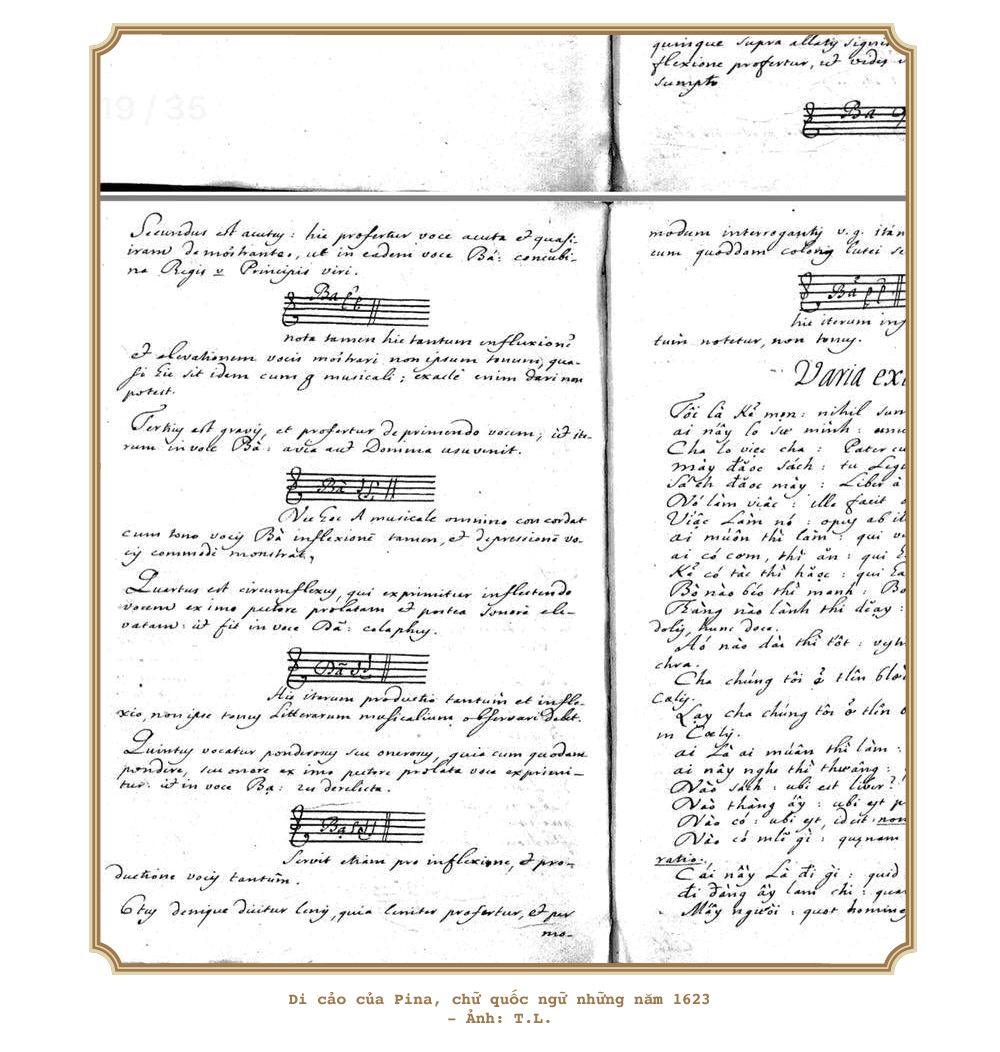 19 / 35
quinque supra allatis signis
flexione profertur, ut vides
sumpto
Ba
Secundus est acutus: hic profertur voce acuta et quasi
iram demonstrante, ut in eadem voce Bá: concubi-
na Regis v Principis viri.
Bá
nota tamen hic tantum inflexione
et elevationem vocis monstrari non ipsum tonum, qua-
si hic sit idem cum musicali; exacte enim dari non
potest.
Tertius est gravis, et profertur deprimendo vocem; ut ite-
rum in voce Bà: avia aut Domina usuvenit.
Bà
Nec hoc A musicale omnino concordat
cum tono vocis Bà inflexione tamen, et depressione vo-
cis commode monstrat,
Quartus est circumflexus, qui exprimitur inflectendo
vocem ex imo pectore prolatam et postea sonore ele-
vatam: ut fit in voce Bã: colaphus.
Bã
Hic iterum productio tantum et infle-
xio, non ipse tonus Litterarum musicalium observari debet.
Quintus vocatur ponderosus seu onerosus, quia cum quodam
pondere, seu onere ex imo pectore prolata voce exprimi-
tur: ut in voce Bạ: res derelicta.
Bạ
Servit etiam pro inflexione, et pro-
ductione vocis tantum.
6tus denique dicitur lenis, quia leniter profertur, et per
mo-
modum interrogantis v.g. itan
cum quoddam
Bả
hic iterum inf
tum notetur, non tonus.
Varia ex
Tôi là Kẻ mọn: nihil sum
ai nấy lo sự mình:
Cha lo việc cha: Pater cu
mày đăọc sách: tu Legi
Sách đăọc mày: Liber à
Nó làm việc: ille facit o
Việc Làm nó: opus ab il
ai muốn thì làm: qui v
ai có cơm, thì ăn: qui
Kẻ có tài thì hăọc: qui
Bò nào béo thì mạnh: Bo
Thàng nào lành thì dĕạy:
dolis, hunc doce.
Áó nào dài thì tốt: vesti
chra.
Cha chúng tôi ở tlên blời
Cælis.
Lạy cha chúng tôi ở tlên
in Cælis.
ai Là ai muấn thì làm:
ai nấy nghe thì thương:
Nào sách: ubi est liber?
Nào thàng ấy: ubi est p
Nào có: ubi est, id est non
Nào có mlẽ gì: quænam
ratio.
Cái nầy Là đí gì: quid
đi đàng ấy làm chi: qua
Mấy người: quot homines
Di cảo của Pina, chữ quốc ngữ những năm 1623
– Ảnh: T.L.